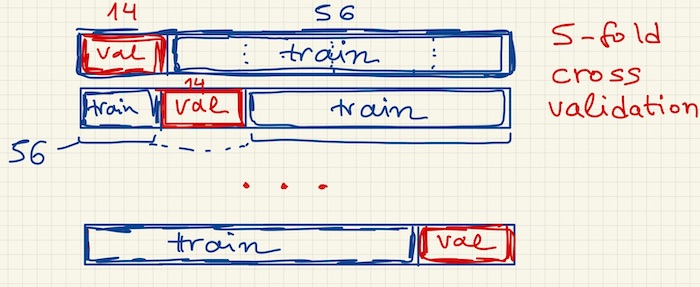 14 56
val train
5-fold
cross
validation
14
train val train
56
. . .
train val